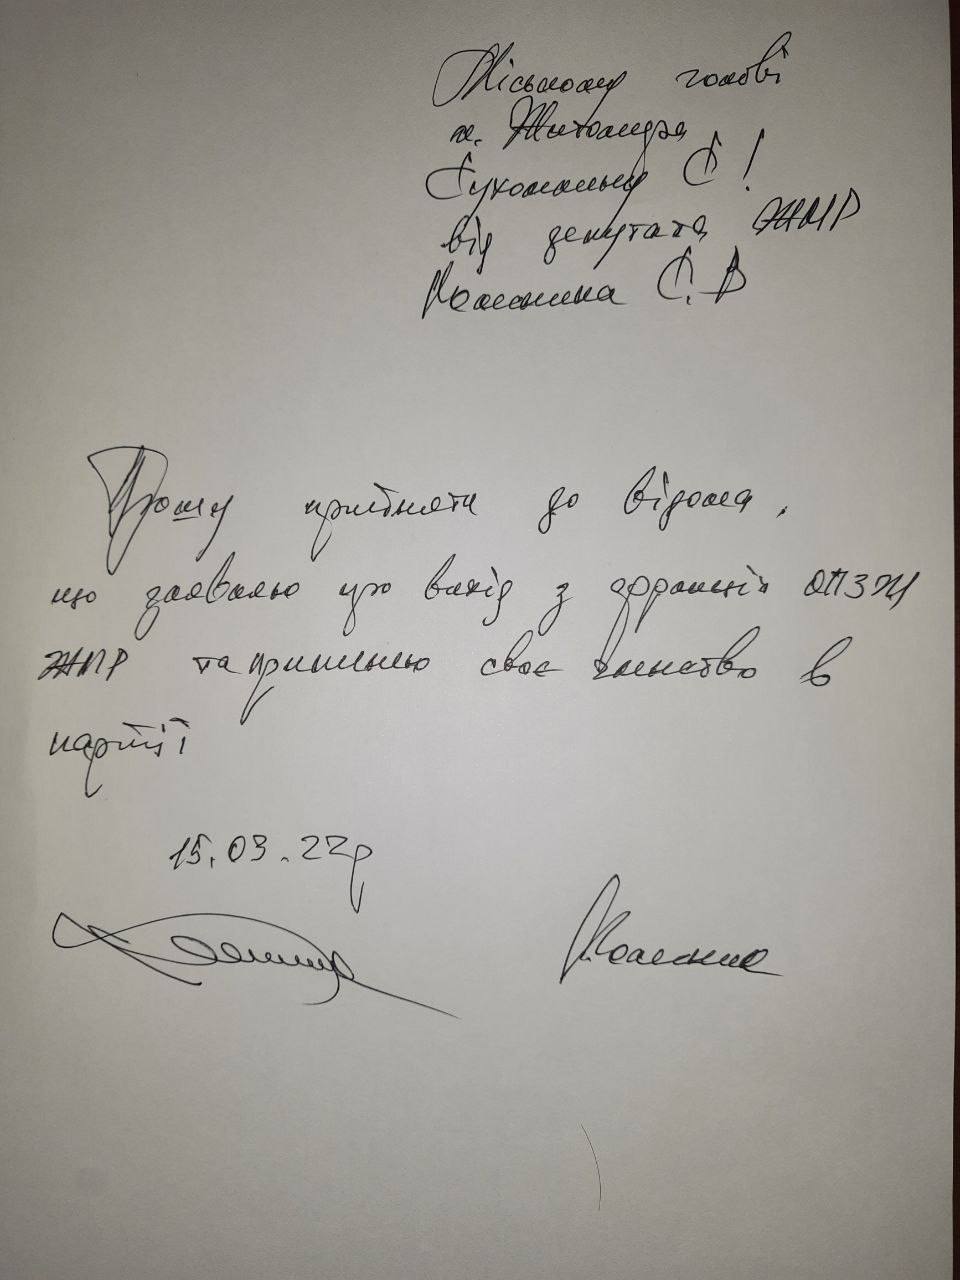 Міському голові
м. Житомира
Сухомлину С !
від депутата ЖМР
Коленика С. В
Прошу прийняти до відома,
що заявляю про вихід з фракції ОПЗЖ
ЖМР та припиняю своє членство в
партії
15.03.22р